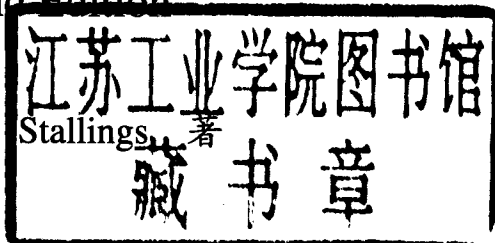 江苏工业学院图书馆
Stallings 著
藏书章